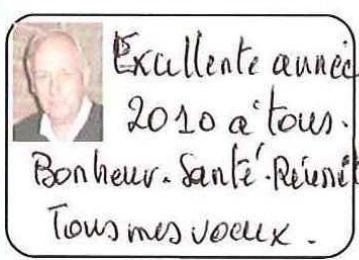 Excellente année
2010 à tous.
Bonheur. Santé. Réussit
Tous mes voeux.